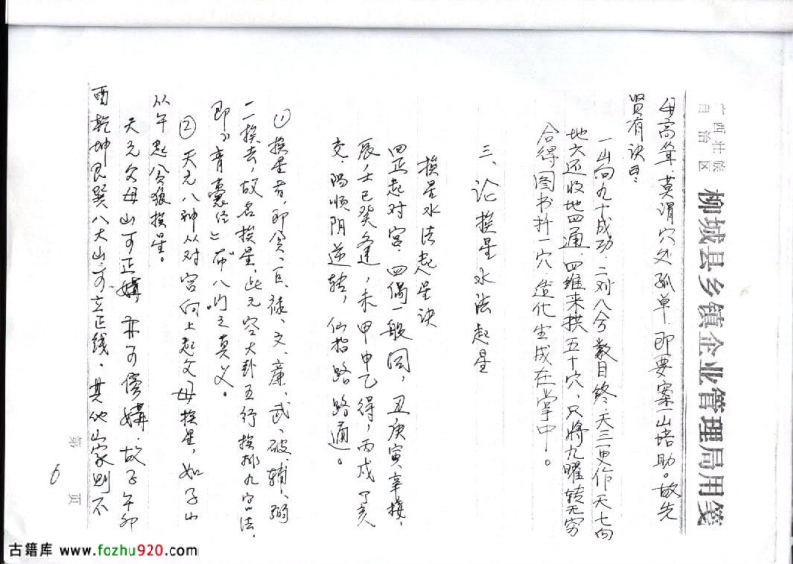 广西壮族
自治区
柳城县乡镇企业管理局用笺
母高耸,莫谓穴处孤单,即要案山培助。故先
贤有诀曰:
一山向九十成功,二对八兮数目终,天三更作天七向
地六还收地四通,四维来拱五十穴,只将九曜转无穷
合得图书扦一穴,造化生成在掌中。
三、论挨星水法起星
挨星水法起星诀
四正起对宫,四偶一般同,丑庚寅辛接,
辰壬巳癸逢,未甲申乙得,丙戌丁亥
交,阳顺阴逆转,仙指路路通。
① 挨星者,即贪、巨、禄、文、廉、武、破、辅、弼
一挨去,故名挨星,此元空大卦五行挨排九宫法,
即《青囊经》“布八门”之真义。
② 天元八神从对宫向上起父母挨星,如子山
从午起贪狼挨星。
天元父母山可正媾,亦可偕媾,故子午卯
酉乾坤艮巽八大山,可立正线,其他山家则不
第6页
古籍库 www.fozhu920.com